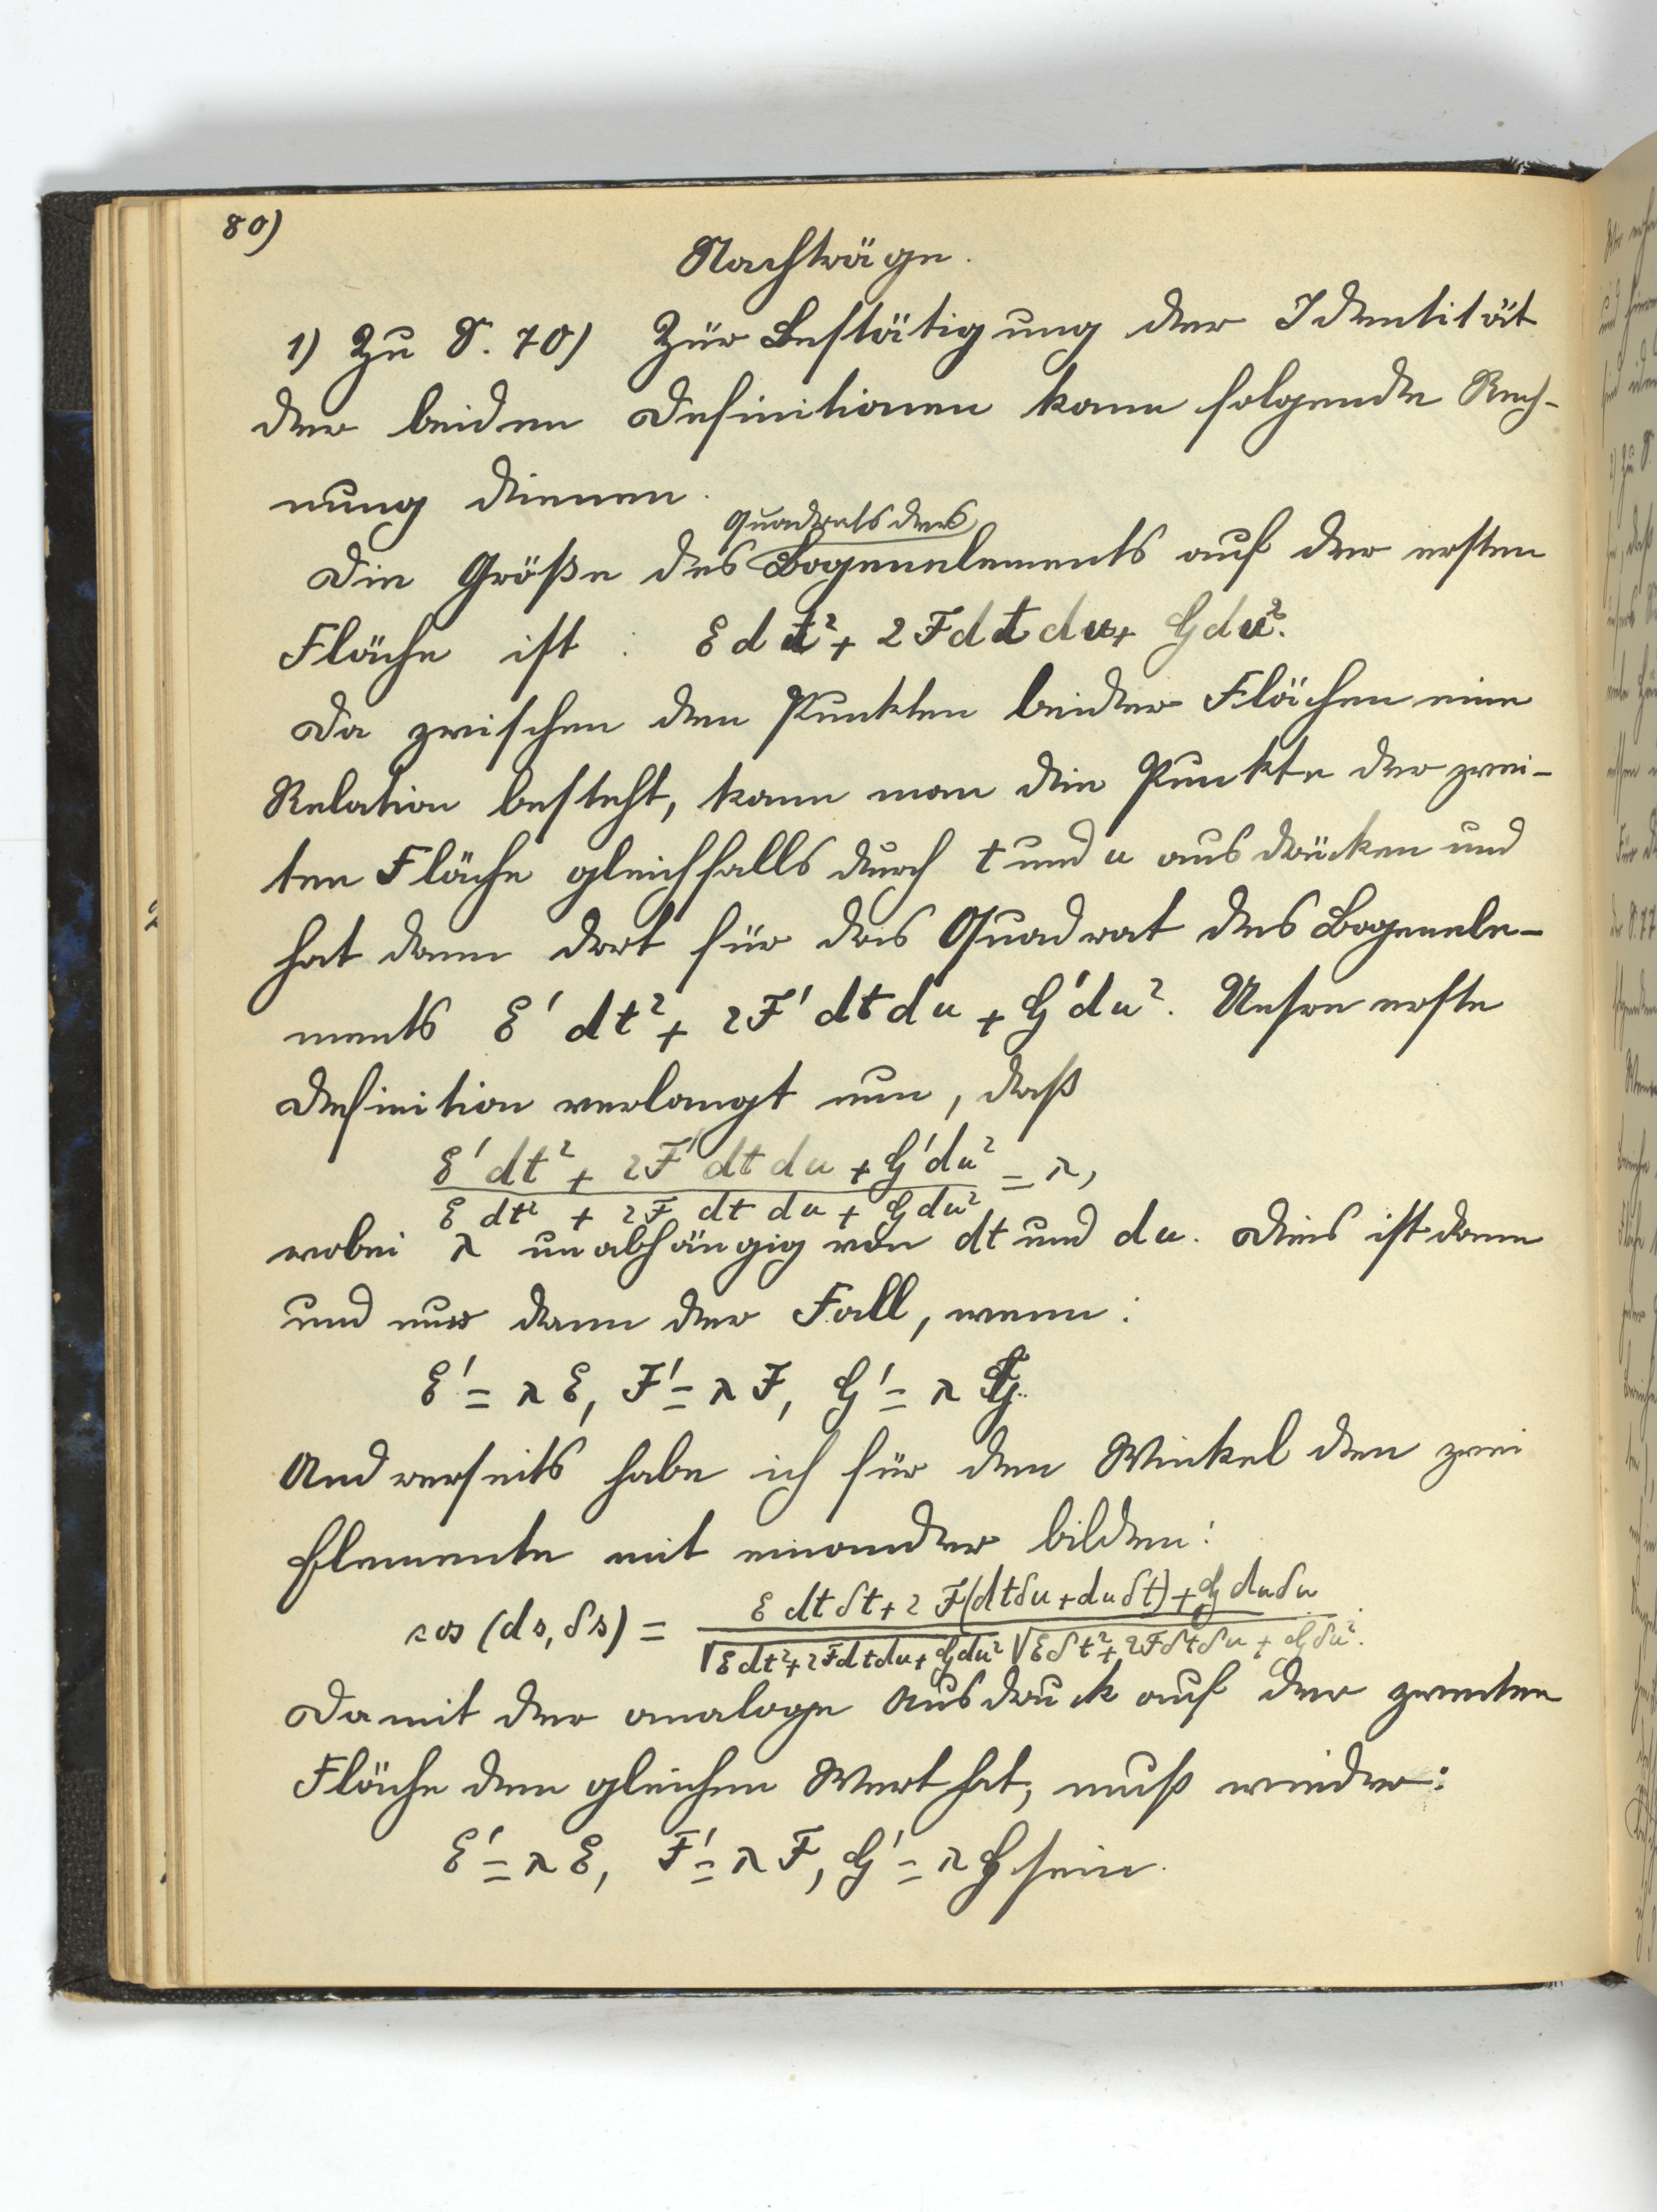 80)
Nachträge.
1) Zu S. 70) Zur Bestätigung der Identität
der beiden Definitionen kann folgende Rech-
nung dienen.
Quadrats des
Die Größe des Bogenelements auf der ersten
Fläche ist : E dt² + 2 F dt du + G du².
Da zwischen den Punkten beider Flächen eine
Relation besteht, kann man die Punkte der zwei-
ten Fläche gleichfalls durch t und u ausdrücken und
hat dann dort für das Quadrat des Bogenele-
ments E' dt² + 2F' dt du + G' du². Unsre erste
Definition verlangt nun, daß
E' dt² + 2F' dt du + G' du² / E dt² + 2F dt du + G du² = λ,
wobei λ unabhängig von dt und du. Dies ist dann
und nur dann der Fall, wenn :
E' = λ E, F' = λ F, G' = λ G.
Andrerseits habe ich für den Winkel den zwei
Elemente mit einander bilden :
cos (ds, δs) = E dt δt + 2 F(dt δu + du δt) + G du δu / √E dt² + 2F dt du + G du² √E δt² + 2F δt δu + G δu².
Damit der analoge Ausdruck auf der zweiten
Fläche den gleichen Wert hat, muß wieder :
E' = λ E, F' = λ F, G' = λ G sein.